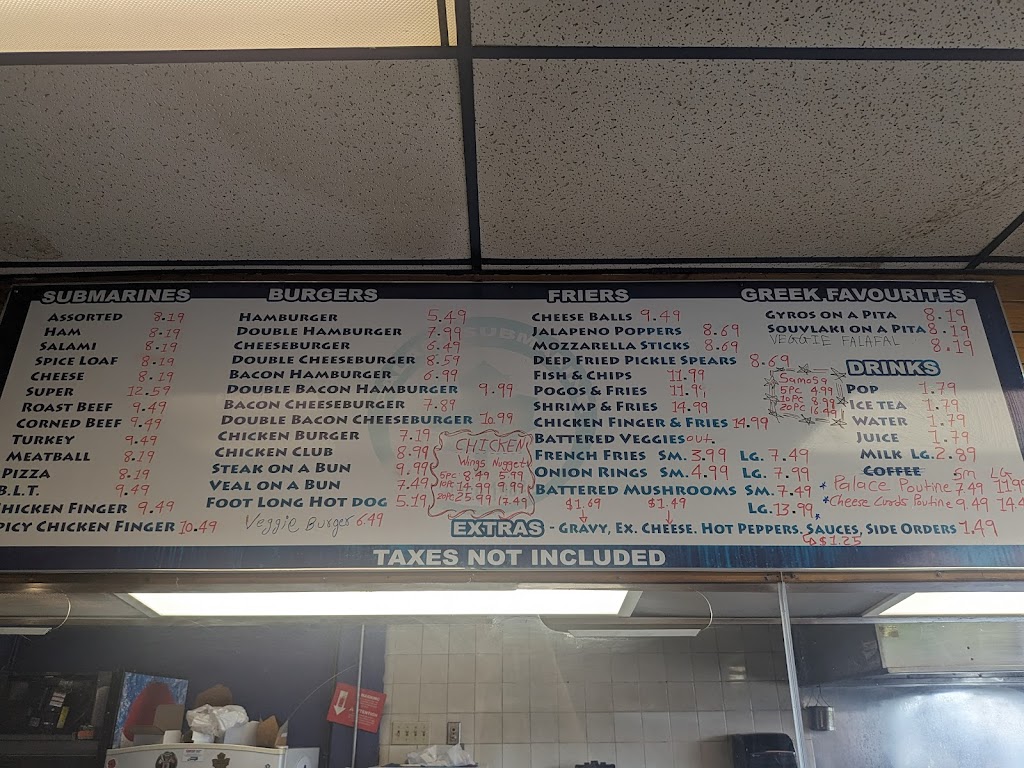 SUBMARINES
ASSORTED 8.19
HAM 8.19
SALAMI 8.19
SPICE LOAF 8.19
CHEESE 8.19
SUPER 12.59
ROAST BEEF 9.49
CORNED BEEF 9.49
TURKEY 9.49
MEATBALL 8.19
PIZZA 8.19
B.L.T. 9.49
CHICKEN FINGER 9.49
SPICY CHICKEN FINGER 10.49
BURGERS
HAMBURGER 5.49
DOUBLE HAMBURGER 7.99
CHEESEBURGER 6.49
DOUBLE CHEESEBURGER 8.59
BACON HAMBURGER 6.99
DOUBLE BACON HAMBURGER 9.99
BACON CHEESEBURGER 7.89
DOUBLE BACON CHEESEBURGER 10.99
CHICKEN BURGER 7.19
CHICKEN CLUB 8.99
STEAK ON A BUN 9.99
VEAL ON A BUN 7.49
FOOT LONG HOT DOG 5.19
Veggie Burger 6.49
CHICKEN
Wings Nugget
5pc 8.49 5.99
10pc 14.99 9.99
20pc 25.99 17.49
FRIERS
CHEESE BALLS 9.49
JALAPENO POPPERS 8.69
MOZZARELLA STICKS 8.69
DEEP FRIED PICKLE SPEARS 8.69
FISH & CHIPS 11.99
POGOS & FRIES
SHRIMP & FRIES 14.99
CHICKEN FINGER & FRIES 14.99
BATTERED VEGGIES out
FRENCH FRIES SM. 3.99 LG. 7.49
ONION RINGS SM. 4.99 LG. 7.99
BATTERED MUSHROOMS SM. 7.49
LG. 13.99
GREEK FAVOURITES
GYROS ON A PITA 8.19
SOUVLAKI ON A PITA 8.19
VEGGIE FALAFAL 8.19
Samosas
5pc 4.99
10pc 8.99
20pc 16.49
DRINKS
POP 1.79
ICE TEA 1.79
WATER 1.79
JUICE 1.79
MILK LG. 2.89
COFFEE
SM LG
* Palace Poutine 7.49 11.99
* Cheese Curds Poutine 9.49 14.4
$1.69 $1.49
EXTRAS - GRAVY, EX. CHEESE. HOT PEPPERS. SAUCES, SIDE ORDERS 1.49
$1.25
TAXES NOT INCLUDED